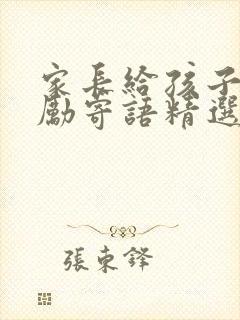 家長給孩子
勵寄語精選
張東鐸